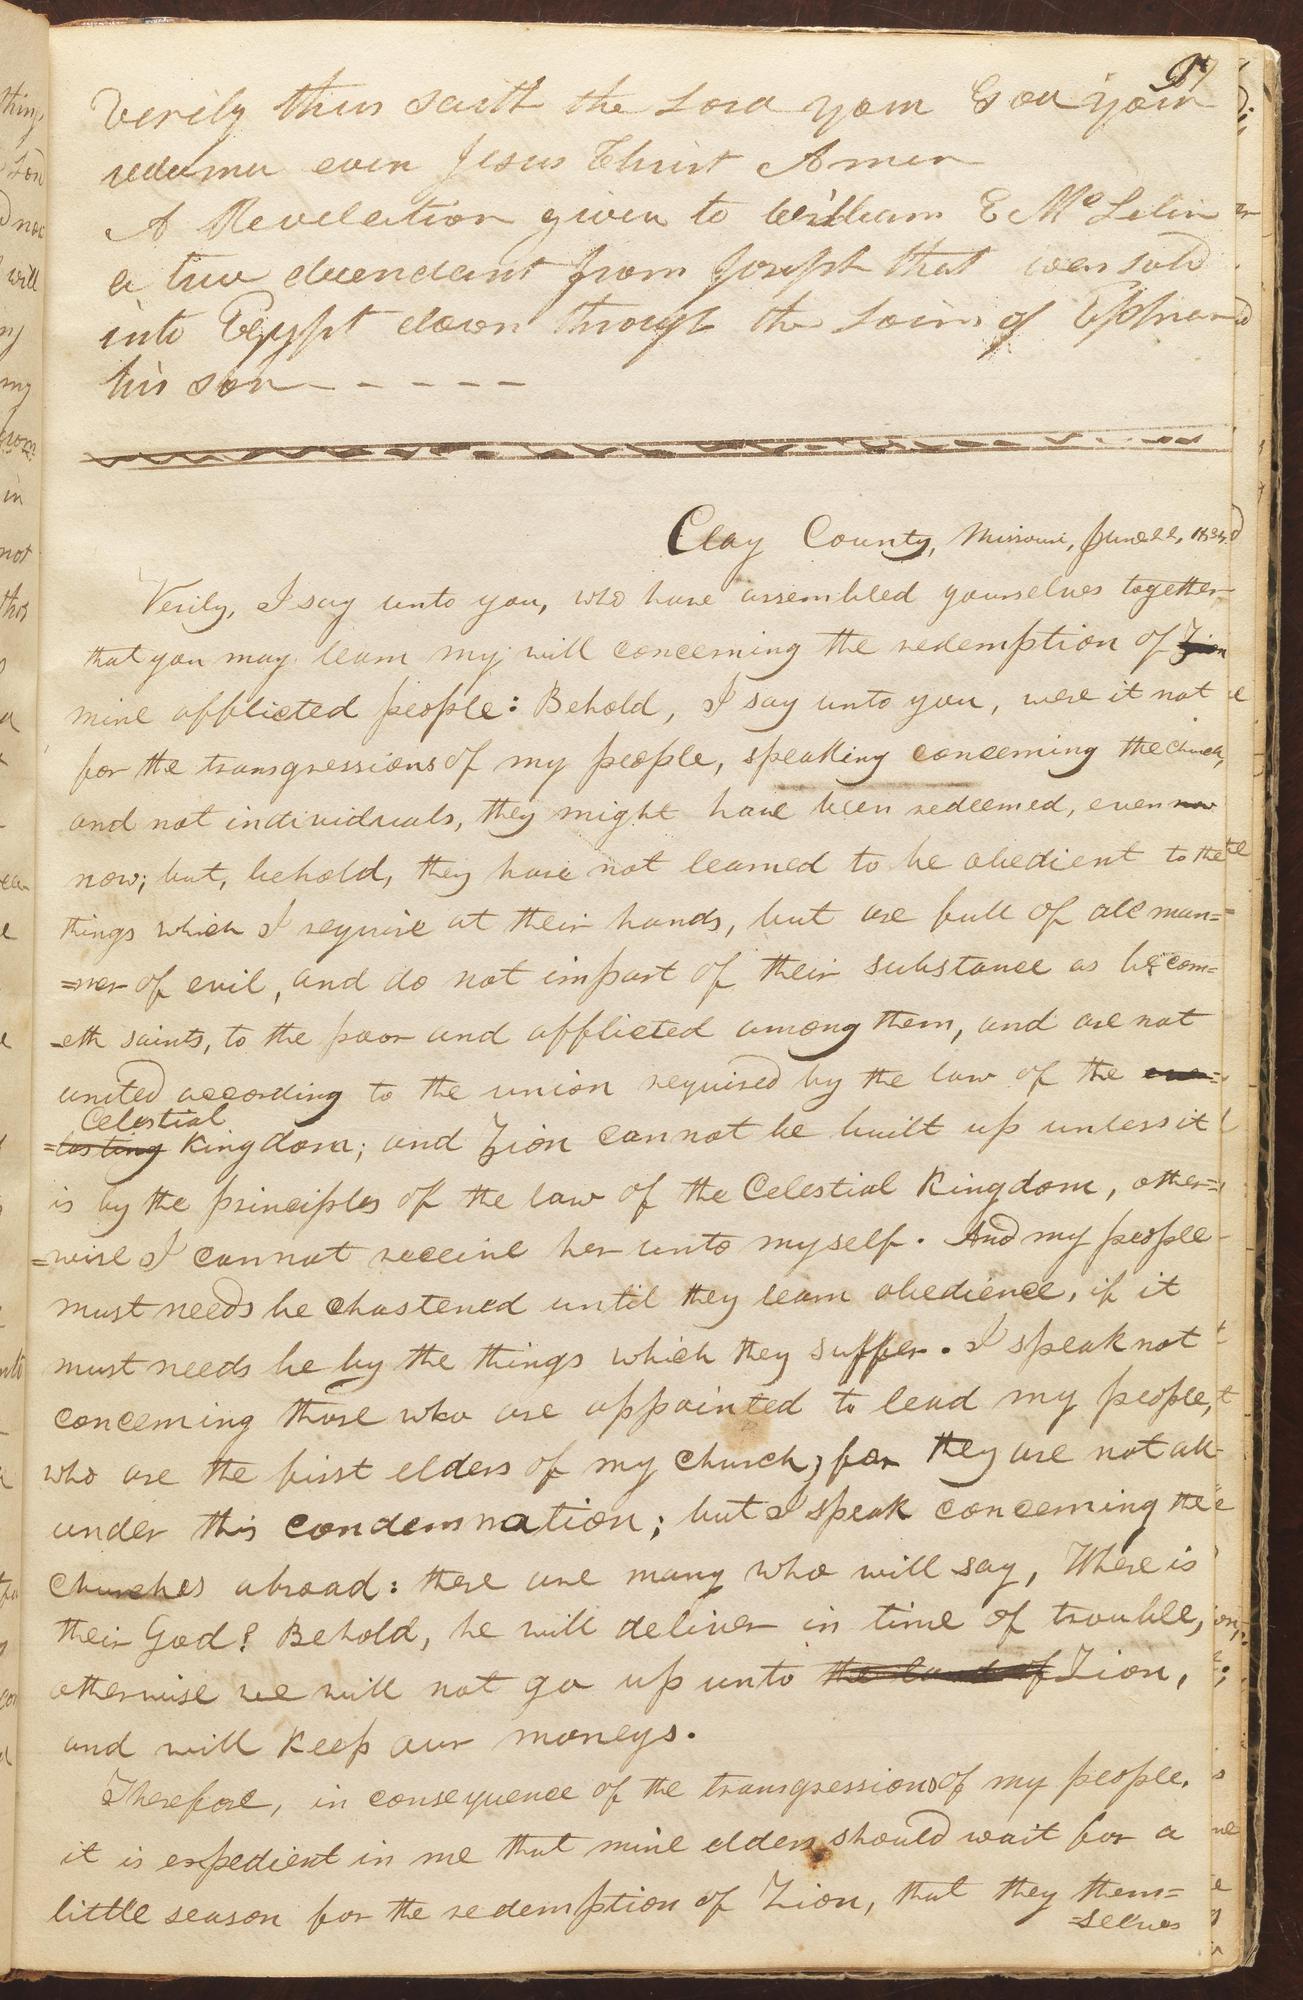 97
Verily thus saith the Lord your God your
redemer even Jesus Christ Amen
A Revelation given to William E McLelin
a true decendant from Joseph that was sold
into Egypt down through the Loins of Ephraim
his son — — — — —
Clay County, Missouri, June 22, 1834.
Verily, I say unto you, who have assembled yourselves together
that you may learn my will concerning the redemption of Zion
mine afflicted people: Behold, I say unto you, were it not
for the transgressions of my people, speaking concerning the church,
and not individuals, they might have been redeemed, even now
now; but, behold, they have not learned to be obedient to the
things which I require at their hands, but are full of all man=
=ner of evil, and do not impart of their substance as becom=
=eth saints, to the poor and afflicted among them, and are not
united according to the union required by the law of the ever=
Celestial
=lasting Kingdom; and Zion cannot be built up unless it
is by the principles of the law of the Celestial Kingdom, other=
=wise I cannot receive her unto myself. And my people
must needs be chastened until they learn obedience, if it
must needs be by the things which they suffer. I speak not
concerning those who are appointed to lead my people,
who are the first elders of my church, for they are not all
under this condemnation; but I speak concerning the
churches abroad: there are many who will say, Where is
their God? Behold, he will deliver in time of trouble,
otherwise we will not go up unto the land of Zion,
and will keep our moneys.
Therefore, in consequence of the transgressions of my people,
it is expedient in me that mine elders should wait for a
little season for the redemption of Zion, that they them=
=selves